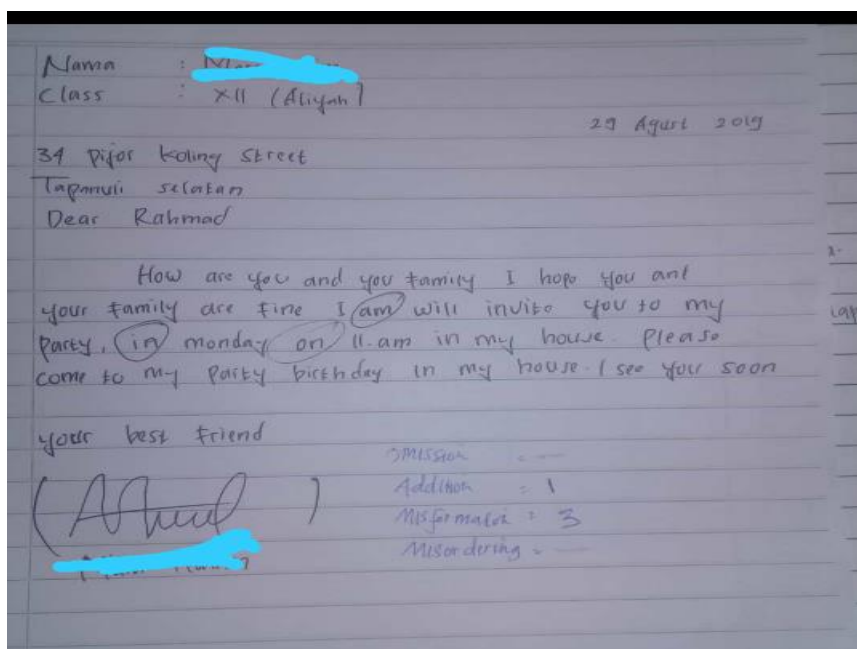 Nama :
Class : XII (Aliyah)
29 Agust 2019
34 Pijor Koling Street
Tapanuli selatan
Dear Rahmad
How are you and you family I hope you ant
your family are fine I am will invite you to my
party, in monday on 11.am in my house. Please
come to my Party birthday in my house. I see you soon
your best friend
Omission : -
Addition : 1
Misformation : 3
Misordering : -